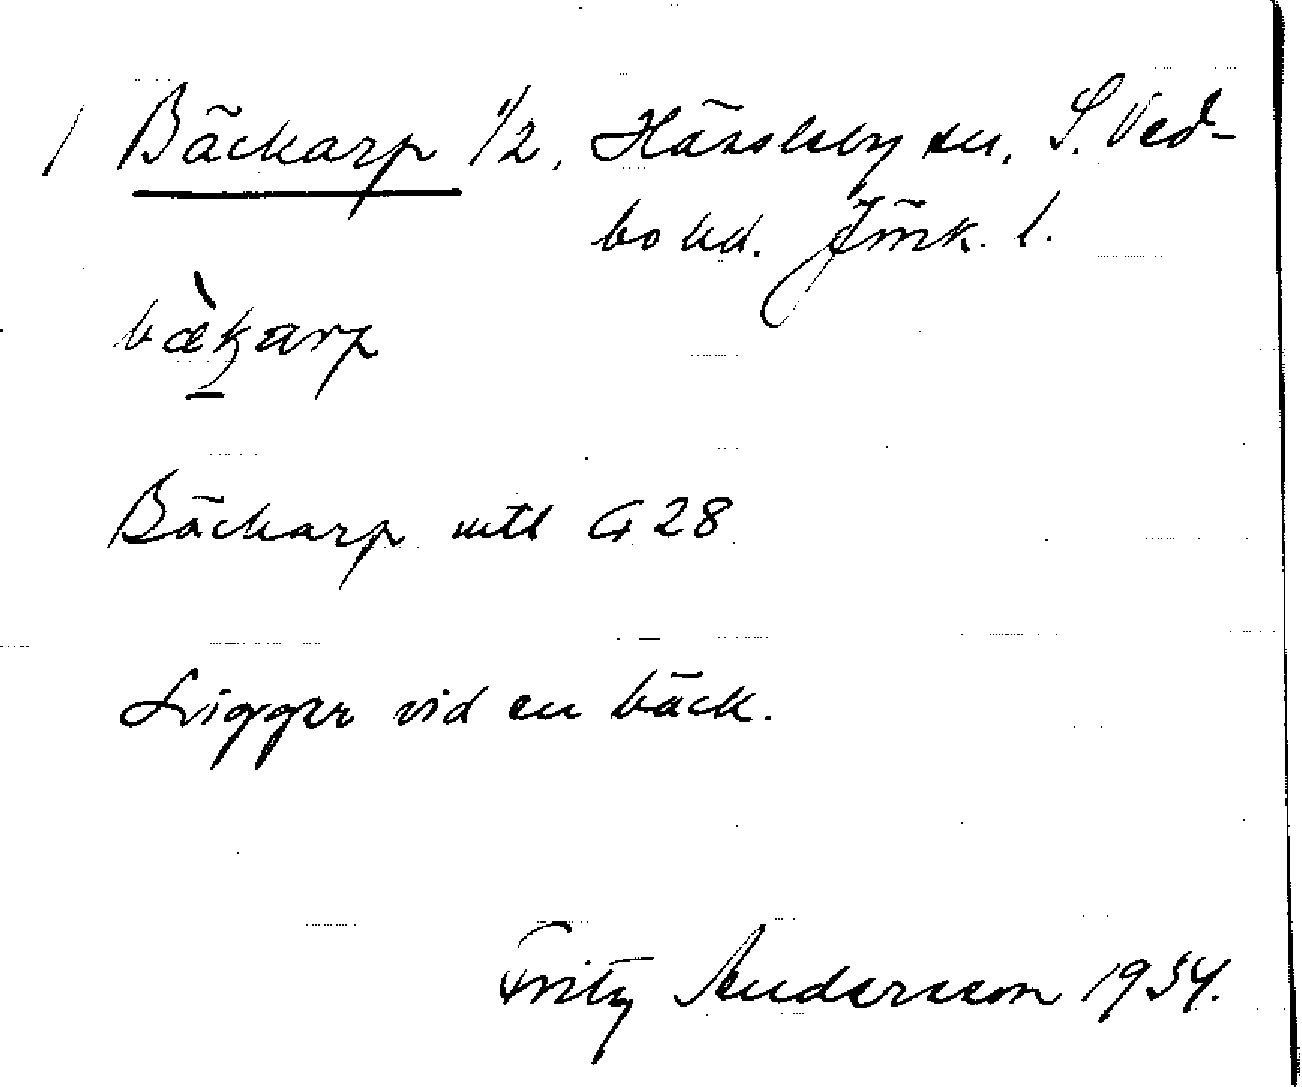 / Bäckarp 1/2, Hässleby sn, S. Ved-
bo hd. Jönk. l.
bæ̀karp
Bäckarp mtl G 28
Ligger vid en bäck.
Fritz Andersson 1934.